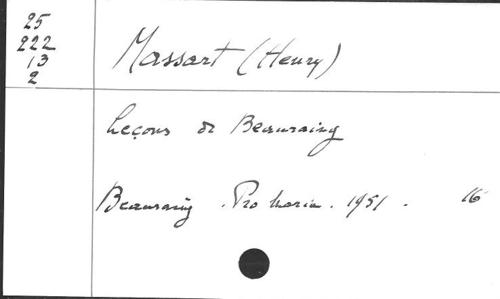 25
222
13
2
Massart (Henry)
Leçons de Beauraing
Beauraing. Pro Maria. 1951. 16